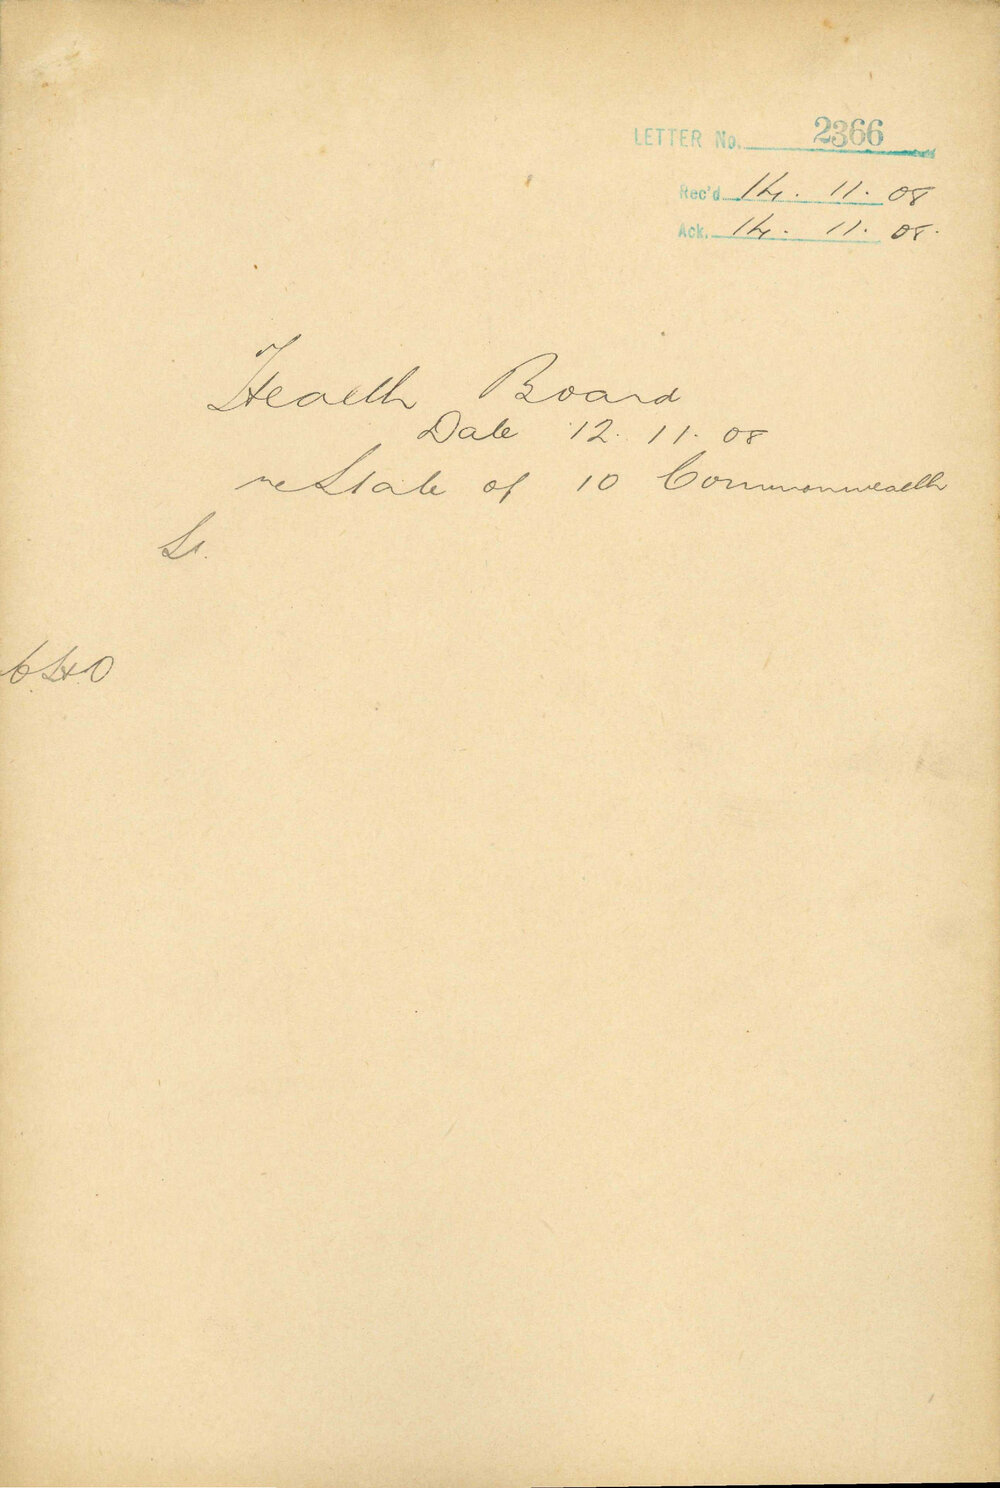 LETTER No. 2366
Rec'd 14. 11. 08
Ack. 14. 11. 08.
Health Board
Date 12. 11. 08
re State of 10 Commonwealth
St.
C.H.O